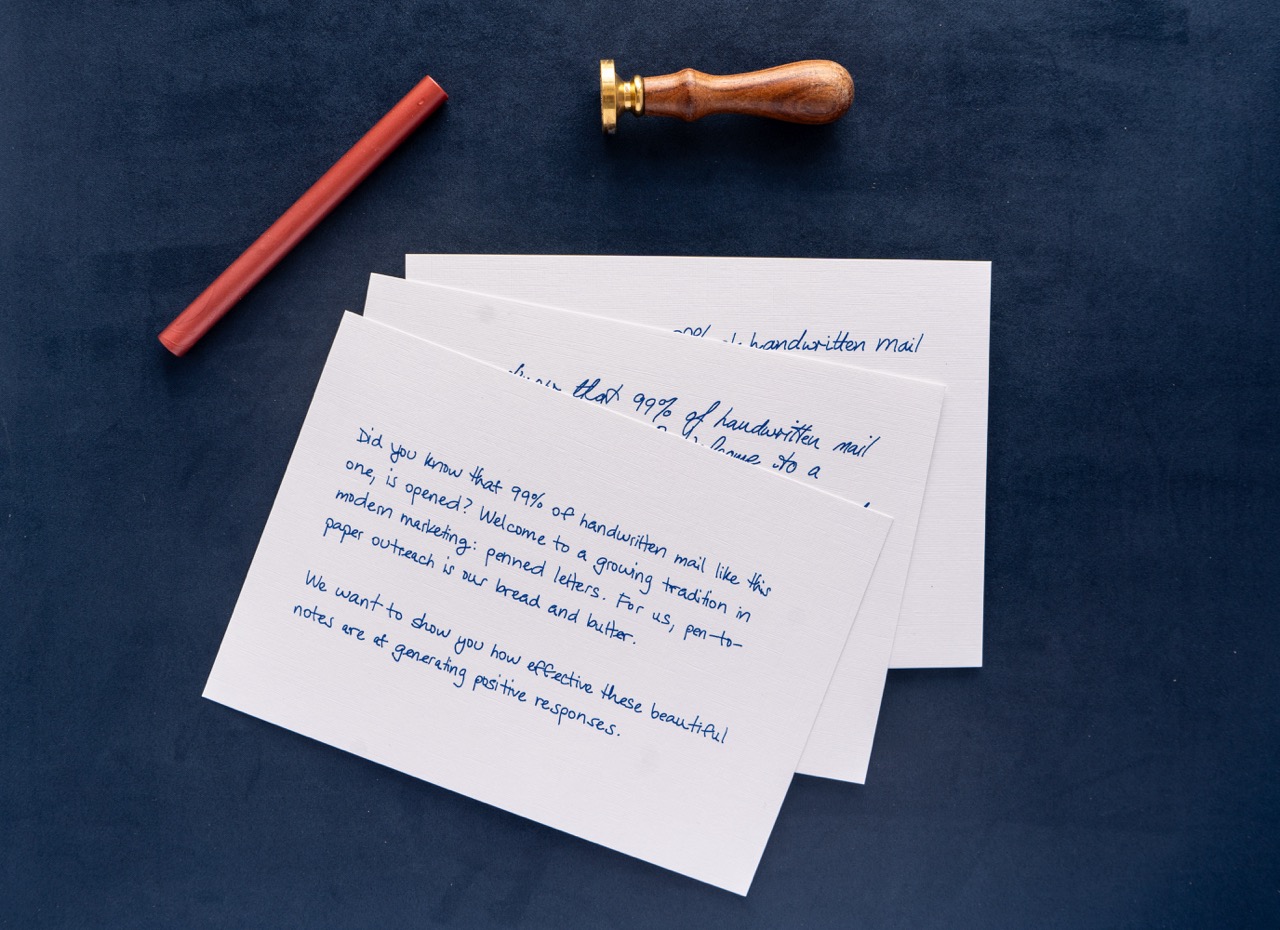 handwritten mail
that 99% of handwritten mail
to a
Did you know that 99% of handwritten mail like this
one, is opened? Welcome to a growing tradition in
modern marketing: penned letters. For us, pen-to-
paper outreach is our bread and butter.
We want to show you how effective these beautiful
notes are at generating positive responses.